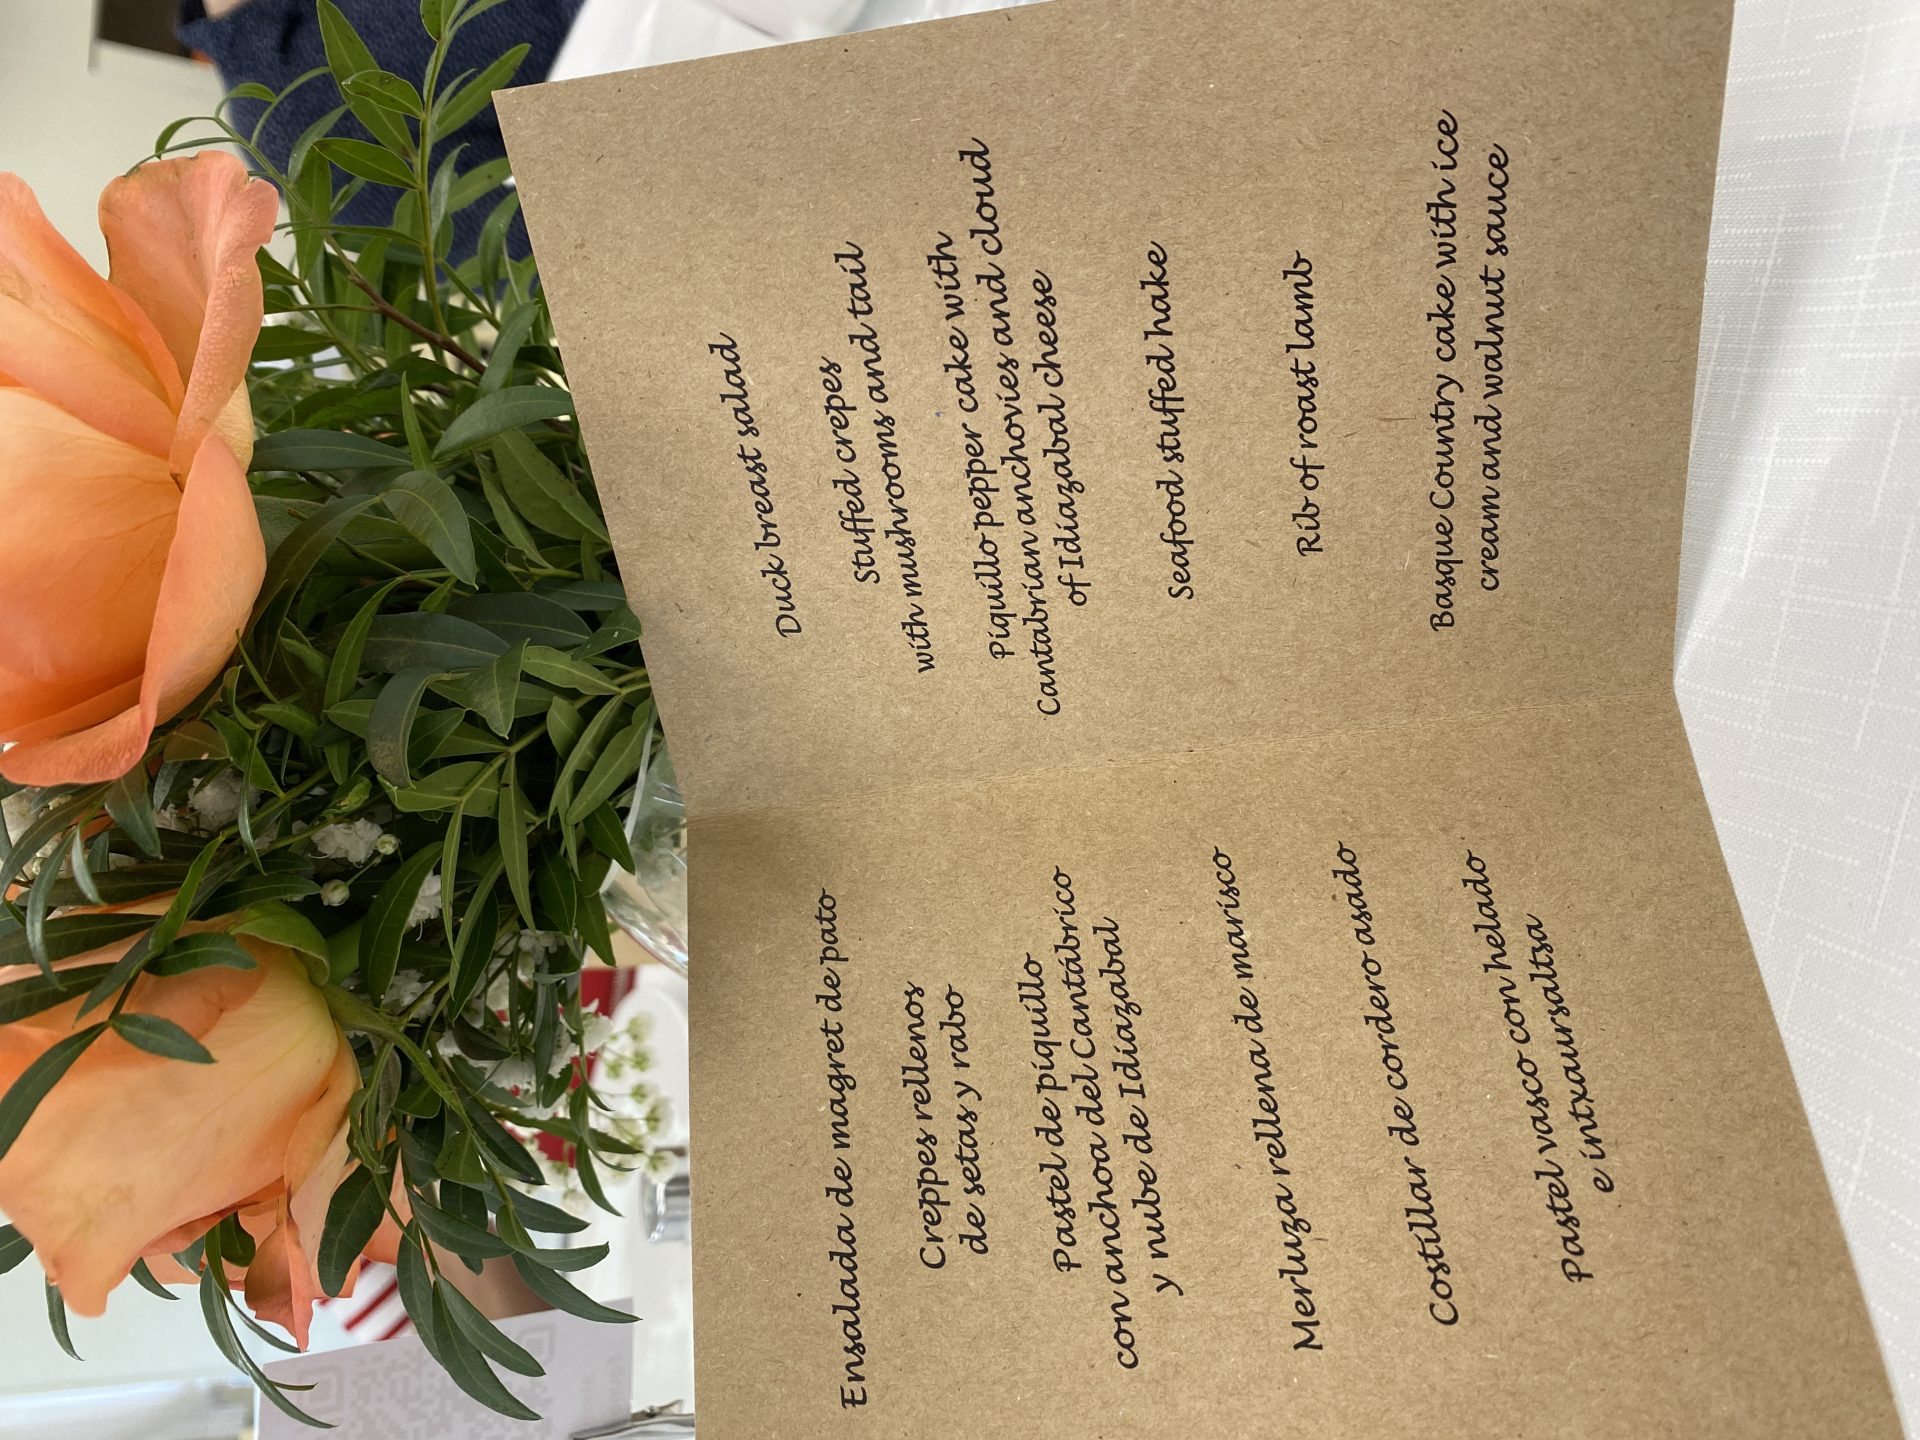 Ensalada de magret de pato
Creppes rellenos
de setas y rabo
Pastel de piquillo
con anchoa del Cantábrico
y nube de Idiazabal
Merluza rellena de marisco
Costillar de cordero asado
Pastel vasco con helado
e intxaursaltsa
Duck breast salad
Stuffed crepes
with mushrooms and tail
Piquillo pepper cake with
Cantabrian anchovies and cloud
of Idiazabal cheese
Seafood stuffed hake
Rib of roast lamb
Basque Country cake with ice
cream and walnut sauce